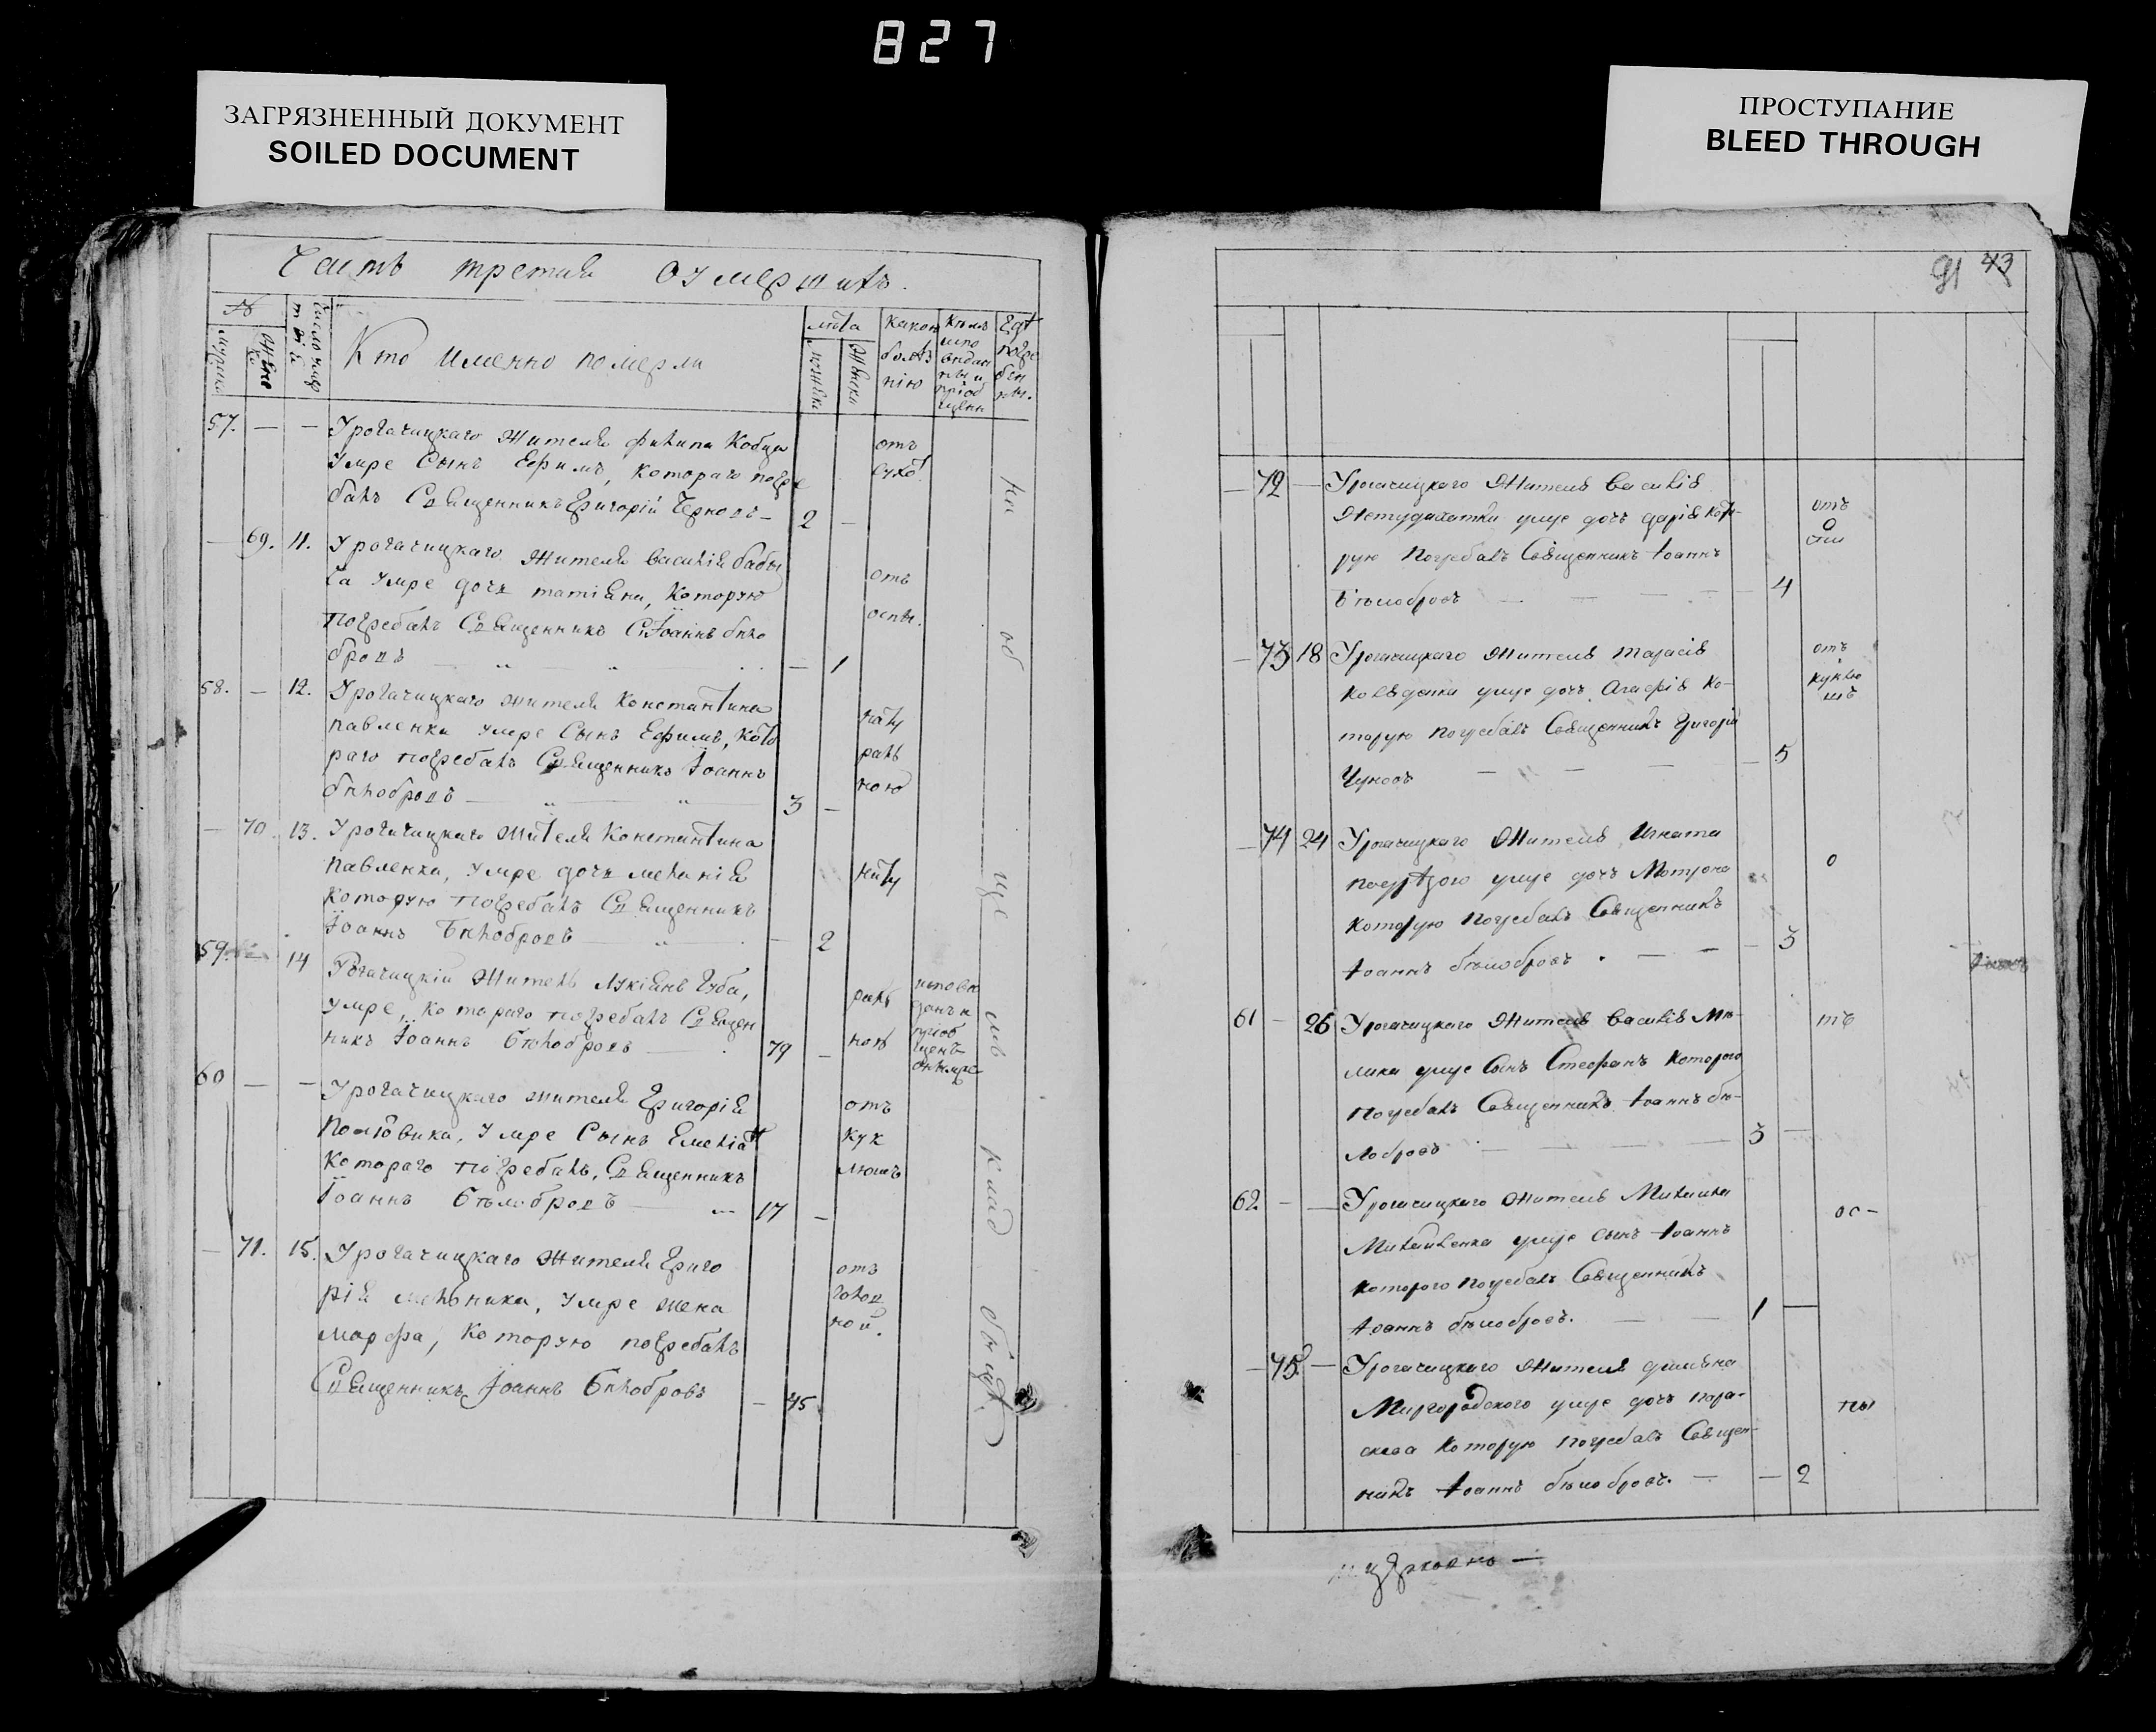 827
ЗАГРЯЗНЕННЫЙ ДОКУМЕНТ
SOILED DOCUMENT
ПРОСТУПАНИЕ
BLEED THROUGH
Часть третия о умершихъ.
№
мужска
женско
Число умер
лѣта
мужска
женска
Кто именно померли
какою
болѣз
нію
Кѣмъ
испо
веданы и
пріоб
щены
Гдѣ
погре
бен
ны.
57. — — Урогачицкаго жителя филипа Кобца
умре Сынъ Ефимъ, котораго погре
балъ Священникъ Григорій 2 —
отъ
сухот
— 69. 11. Урогачицкаго жителя василія бабы
ча умре дочь татіяна, Которую
погребалъ Священникъ Іоаннъ бѣло
бровъ — 1
отъ
оспы.
58. — 12. Урогачицкаго жителя Константина
павленка умре Сынъ Ефимъ, кото
раго погребалъ Священникъ Іоаннъ
бѣлобровъ — 3 —
нату
раль
ною
— 70. 13. Урогачицкаго жителя Константина
павленка, умре дочь меланія
которую погребалъ Священникъ
Іоаннъ Бѣлобровъ — — 2
нату
59. — 14 Рогачицкій житель Лукіянъ Губа,
умре, котораго погребалъ Священ
никъ Іоаннъ бѣлобровъ — 79 —
раль
ною
исповѣ
данъ и
пріоб
щенъ
60 — — Урогачицкаго жителя Григорія
умре Сынъ Емеліан
котораго погребалъ, Священникъ
Іоаннъ бѣлобровъ — 17 —
отъ
кук
люшъ
— 71. 15. Урогачицкаго жителя Григо
рія мельника, умре жена
марфа, которую погребалъ
Священникъ Іоаннъ бѣлобровъ — 45
отъ
на об ще мъ клад бищѣ.
91 43
— 72 — Урогачицкаго жителя василія
умре дочъ дарія кото-
рую погребалъ Священникъ Іоаннъ
бѣлобровъ — — — 4
отъ
о
— 73 18 Урогачицкаго жителя тарасія
умре дочъ Агафія ко-
торую погребалъ Священникъ Григорій
— — — 5
отъ
куклю
шъ
— 74 24 Урогачицкаго жителя Игната
умре дочъ Мотрона
которую погребалъ Священникъ
Іоаннъ бѣлобровъ. — — 3
о
61 — 26 Урогачицкаго жителя василія Мѣ-
лика умре Сынъ Стефанъ которого
погребалъ Священникъ Іоаннъ бѣ-
лобровъ — — 3 —
тъ
62. — — Урогачицкаго жителя Михаила
Михайленка умре сынъ Іоаннъ
которого погребалъ Священникъ
Іоаннъ бѣлобровъ. — — 1 —
ос-
— 75. — Урогачицкаго жителя
Миргородского умре дочъ пара-
скева которую погребалъ Священ-
никъ Іоаннъ бѣлобровъ. — — 2
пы